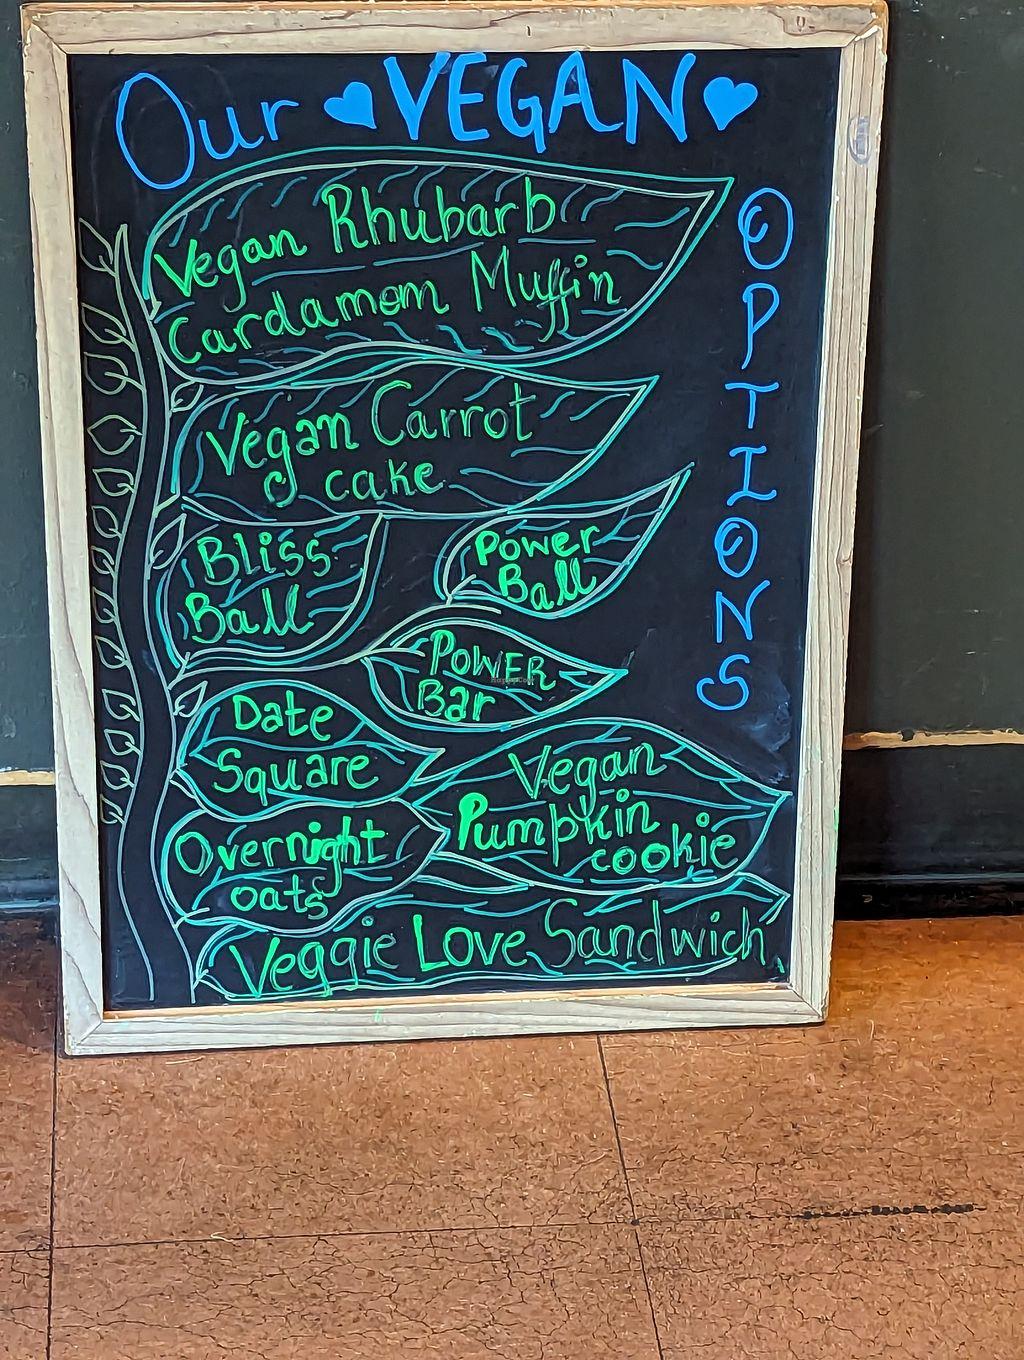 Our VEGAN
OPTIONS
Vegan Rhubarb
Cardamom Muffin
Vegan Carrot
cake
Bliss
Ball
Power
Ball
POWER
Bar
Date
Square
Vegan
Pumpkin
cookie
Overnight
oats
Veggie Love Sandwich